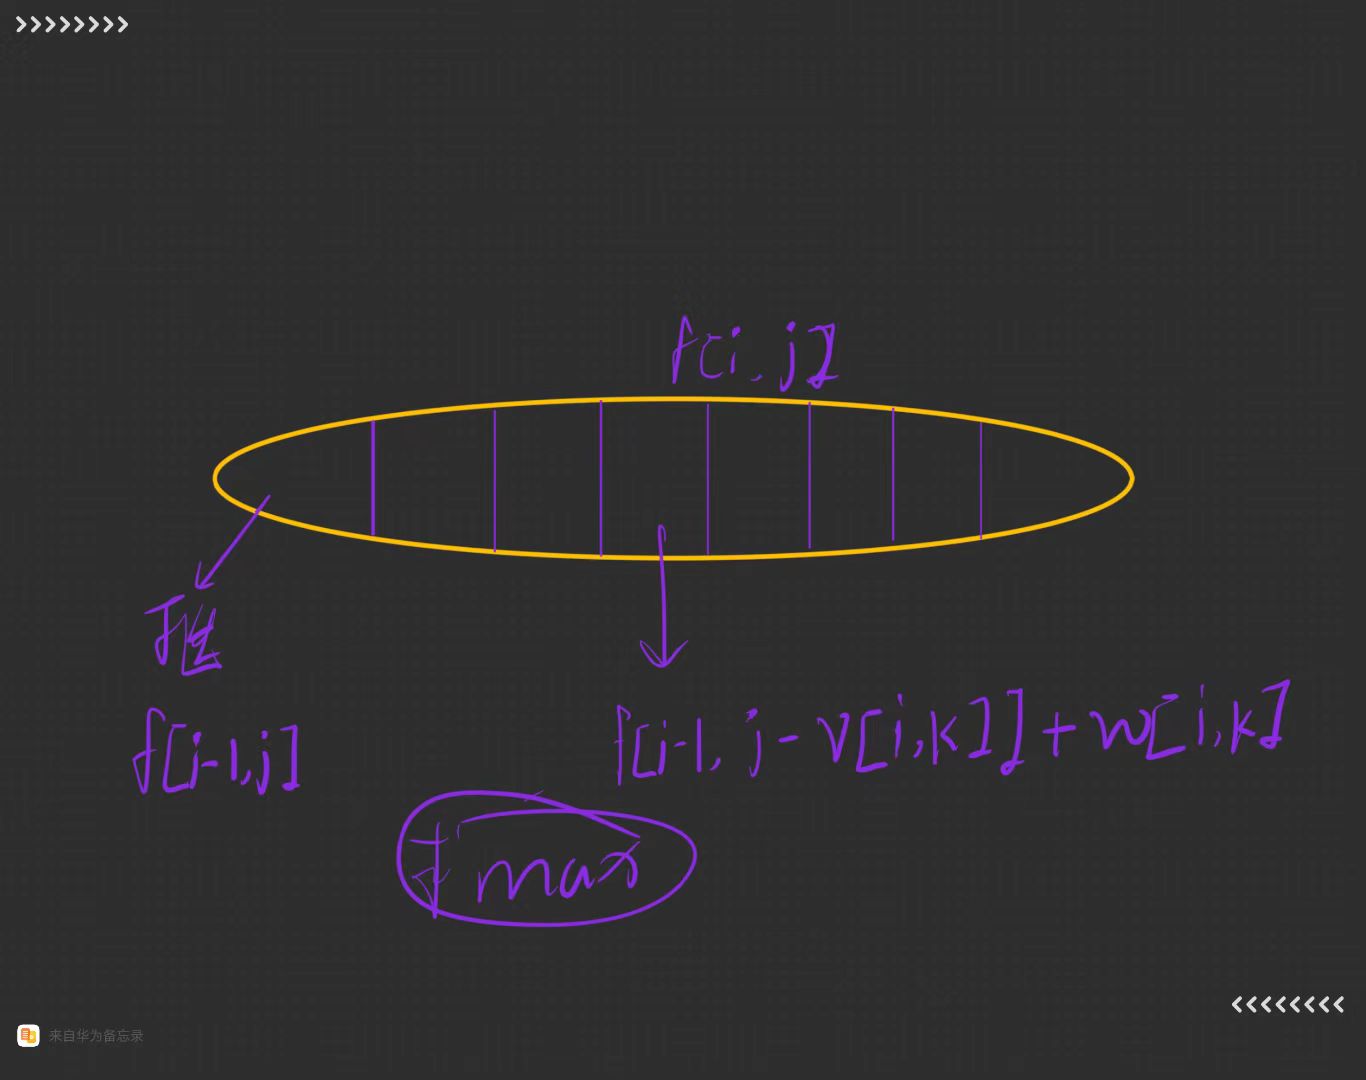 f[i, j]
f[i-1, j]
f[i-1, j - v[i,k]] + w[i,k]
max
来自华为备忘录